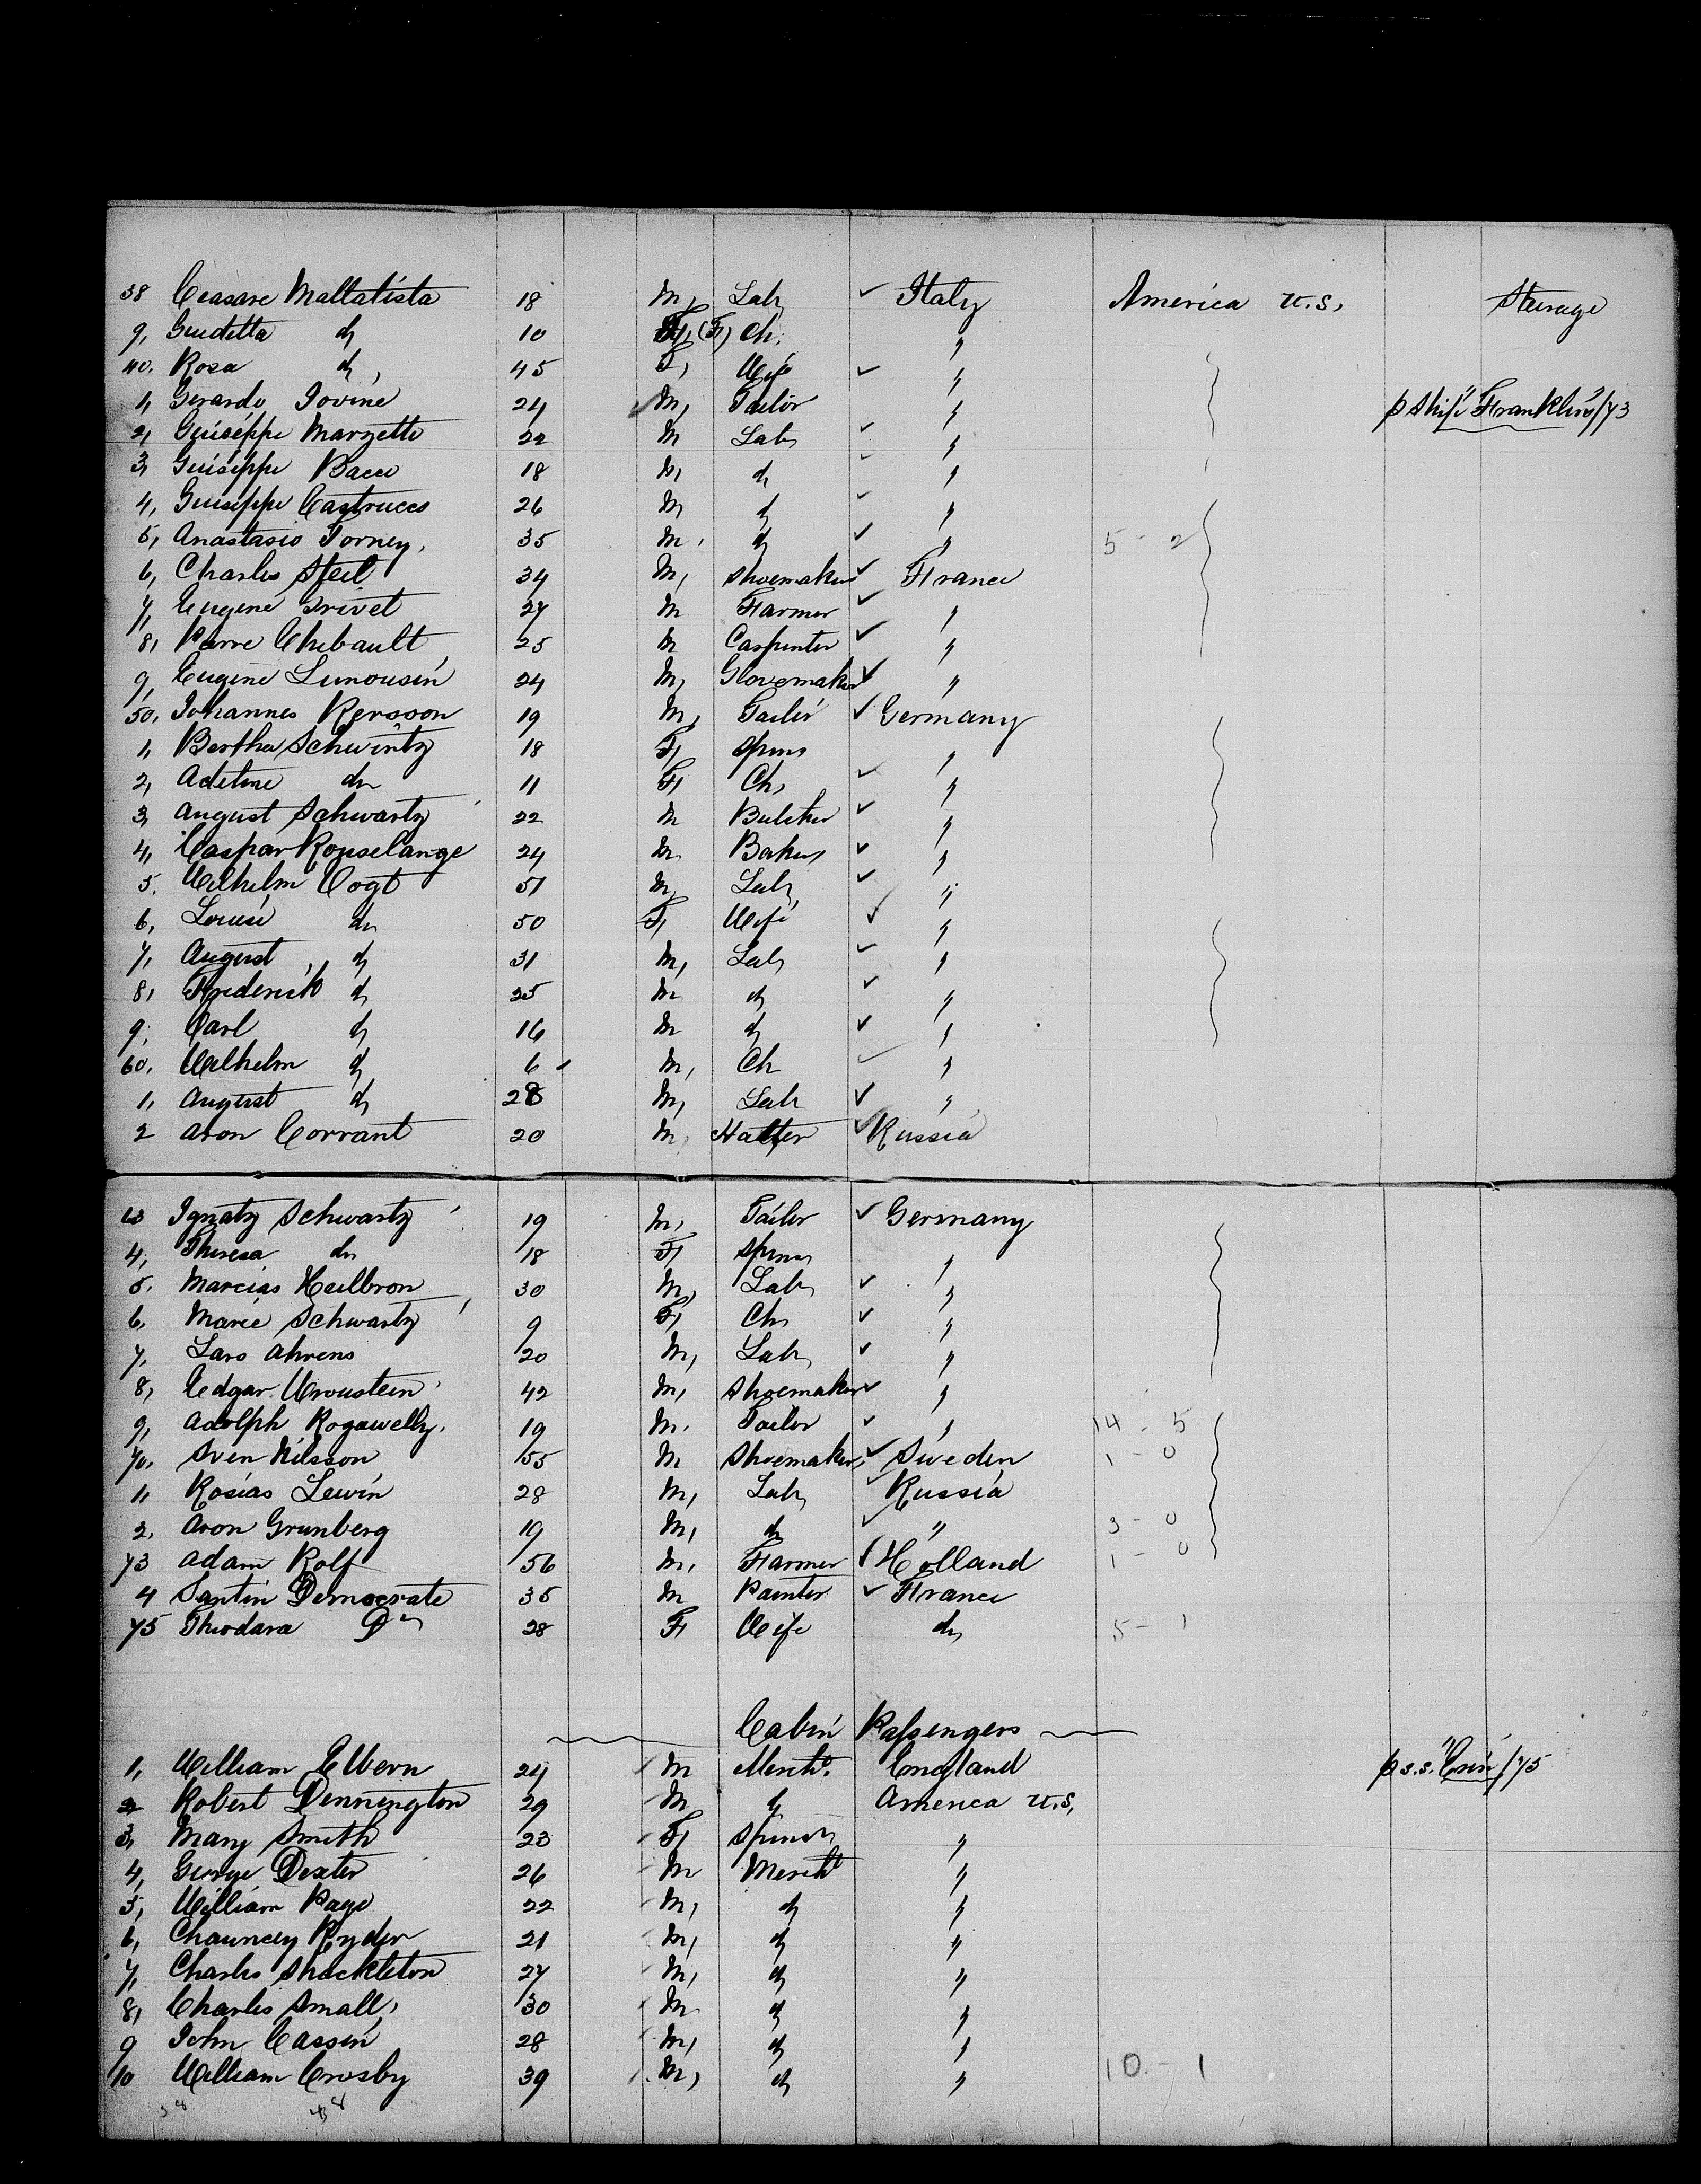 38 Ceasare Mallatista 18 M, Lab, ✓ Italy America U.S, Steerage
9, Giuditta do 10 F, (F) Ch. "
40. Rosa do, 45 F, Wife ✓ "
1, Gerardo Iovine 24 ✓ M, Tailor " p Ship "Franklin"/73
2, Guiseppe Marzetto 22 M Lab, ✓ "
3, Guiseppe Bacco 18 M, do ✓ "
4, Guiseppe Castrucco 26 M do ✓ "
5, Anastasio Torney, 35 M, do ✓ " 5 - 2
6, Charles Steil 34 M, Shoemaker ✓ France
7, Eugene Trivet 27 M Farmer ✓ "
8, Pierre Thibault 25 M Carpenter ✓ "
9, Eugene Limousin 24 M, Glovemaker ✓ "
50, Johannes Persson 19 M, Tailor ✓ Germany
1, Bertha Schwintz 18 F, Spins "
2, Adeline do 11 F, Ch, ✓ "
3, August Schwartz 22 M Butcher ✓ "
4, Caspar Rouselange 24 M. Baker ✓ "
5. Wilhelm Vogt 51 M, Lab, ✓ "
6, Louise do 50 F, Wife ✓ "
7, August, do 31 M, Lab, ✓ "
8, Frederick do 25 M do ✓ "
9, Carl do 16 M do ✓ "
60, Wilhelm do 6 M, Ch ✓ "
1, August do 28 M, Lab ✓ "
2 Aron Corrant 20 M. Hatter ✓ Russia
63 Ignatz Schwartz 19 M, Tailor ✓ Germany
4, Theresa do 18 F, Spins "
5. Marcias Heilbron 30 M, Lab, ✓ "
6, Marie Schwartz 9 F, Ch, ✓ "
7, Lars Ahrens 20 M, Lab, ✓ "
8, Edgar 42 M, Shoemaker ✓ "
9, Adolph Rogawelly, 19 M. Tailor ✓ " 14 - 5
70, Sven Nilsson 55 M Shoemaker, ✓ Sweden 1 - 0
1, Rosias Lewin 28 M, Lab, ✓ Russia
2, Aron Grunberg 19 M, do ✓ " 3 - 0
73 Adam Rolf 56 M, Farmer ✓ Holland 1 - 0
4 Santin Democrate 35 M Painter ✓ France
75 Theodara Do 28 F, Wife do 5 - 1
Cabin Passengers
1, William Elbern 24 M Mercht. England p s.s. "Erin"/75
2 Robert Dennington 29 M do America U.S,
3, Mary Smith 23 F, Spinstr "
4, George Dexter 26 M Mercht "
5, William Page 22 M, do "
6, Chauncey Ryder 21 M, do "
7, Charles Shackleton 27 M, do "
8, Charles Small, 30 M. do "
9 John Cassin 28 M, do "
10 William Crosby 39 M, do " 10 - 1